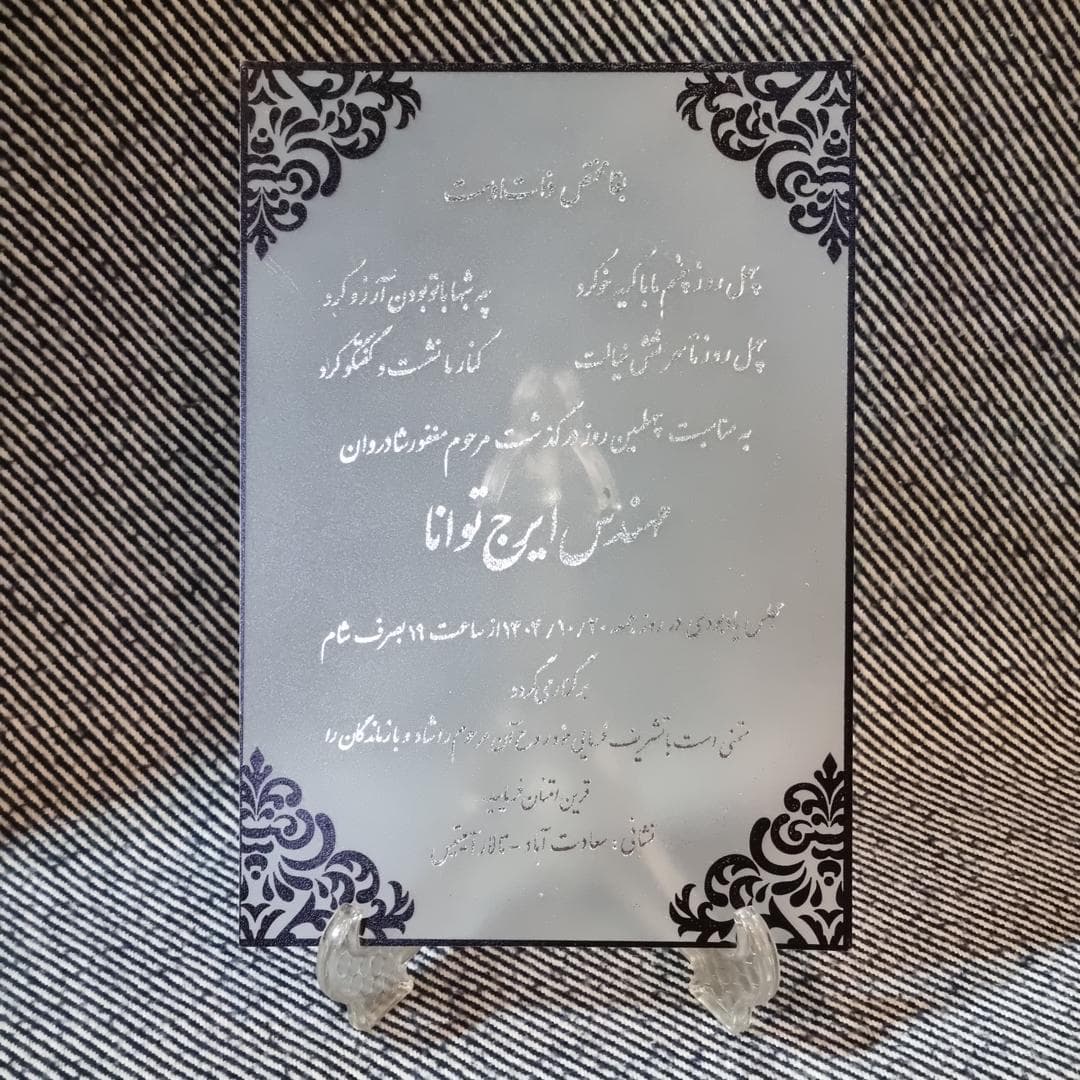 بقا مختص ذات اوست
چهل روز چشم ما با گریه خو کرد چه شبها با تو بودن آرزو کرد
چهل روز تا سحر نقش خیالت کنار ما نشست و گفتگو کرد
به مناسبت چهلمین روز درگذشت مرحوم مغفور شادروان
مهندس ایرج توانا
مجلس یادبودی در روز ۱۴۰۴/۱۰/۲۰ از ساعت ۱۹ بصرف شام
برگزار می گردد
متمنی است با تشریف فرمایی خود روح آن مرحوم را شاد و بازماندگان را
قرین امتنان فرمایید
نشانی : سعادت آباد - تالار